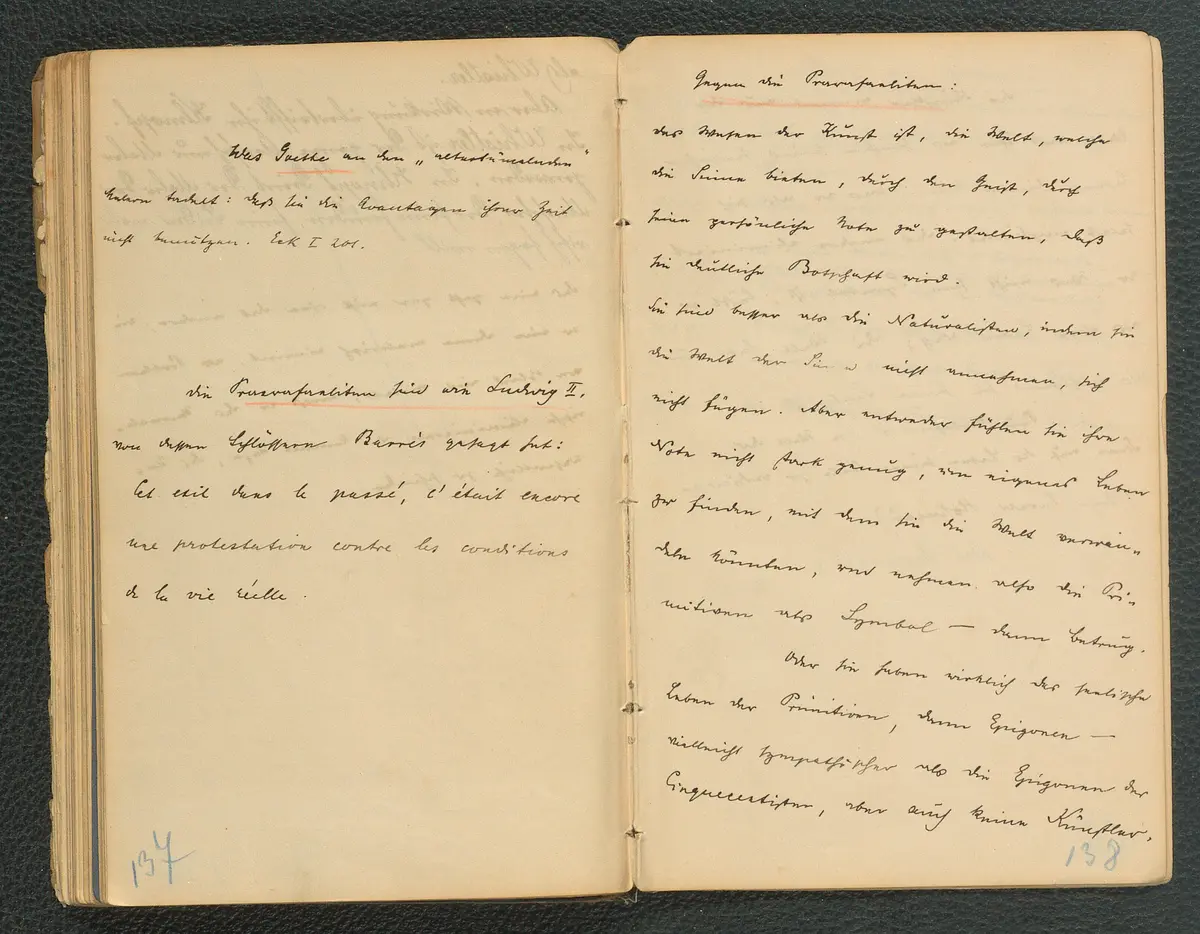 Was Goethe an den „altertümelnden"
Malern tadelt: daß sie die Avantagen ihrer Zeit
nicht benützen. Eck I 201.
Die Praerafaeliten sind wie Ludwig II,
von dessen Schlössern Barrès gesagt hat:
Cet exil dans le passé, c'était encore
une protestation contre les conditions
de la vie réelle.
137
Gegen die Praerafaeliten:
das Wesen der Kunst ist, die Welt, welche
die Sinne bieten, durch den Geist, durch
seine persönliche Note zu gestalten, daß
sie deutliche Botschaft wird.
Sie sind besser als die Naturalisten, indem sie
die Welt der Sinne nicht annehmen, sich
nicht fügen. Aber entweder fühlen sie ihre
Note nicht stark genug, um eigenes Leben
zu finden, mit dem sie die Welt verwan=
deln könnten, und nehmen also die Pri=
mitiven als Symbol — dann Betrug.
Oder sie haben wirklich das seelische
Leben der Primitiven, dann Epigonen —
vielleicht sympathischer als die Epigonen der
Cinquecentisten, aber auch keine Künstler.
138